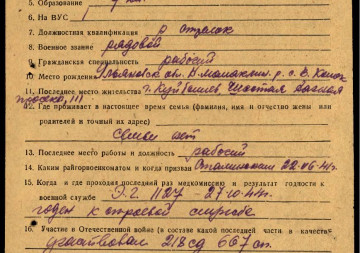 5. Образование
6. На ВУС
7. Должностная квалификация стрелок
8. Военное звание рядовой
9. Гражданская специальность рабочий
10 Место рождения Ульяновск. обл. Н-Малаклин. р.
11. Последнее место жительства г. Куйбышев Шестая
просека,
12. Где проживает в настоящее время семья (фамилия, имя и отчество жены или
родителей и точный их адрес)
Семьи нет
13. Последнее место работы и должность рабочий
14. Каким райгорвоенкоматом и когда призван Сталинским 22-VI-41г.
15. Когда и где проходил последний раз медкомиссию и результат годности к
военной службе Э.Г. 1127 27-10-44г.
годен к строевой службе
16. Участие в Отечественной войне (в составе какой последней части и качестве
участвовал 218 сд 667 сп.